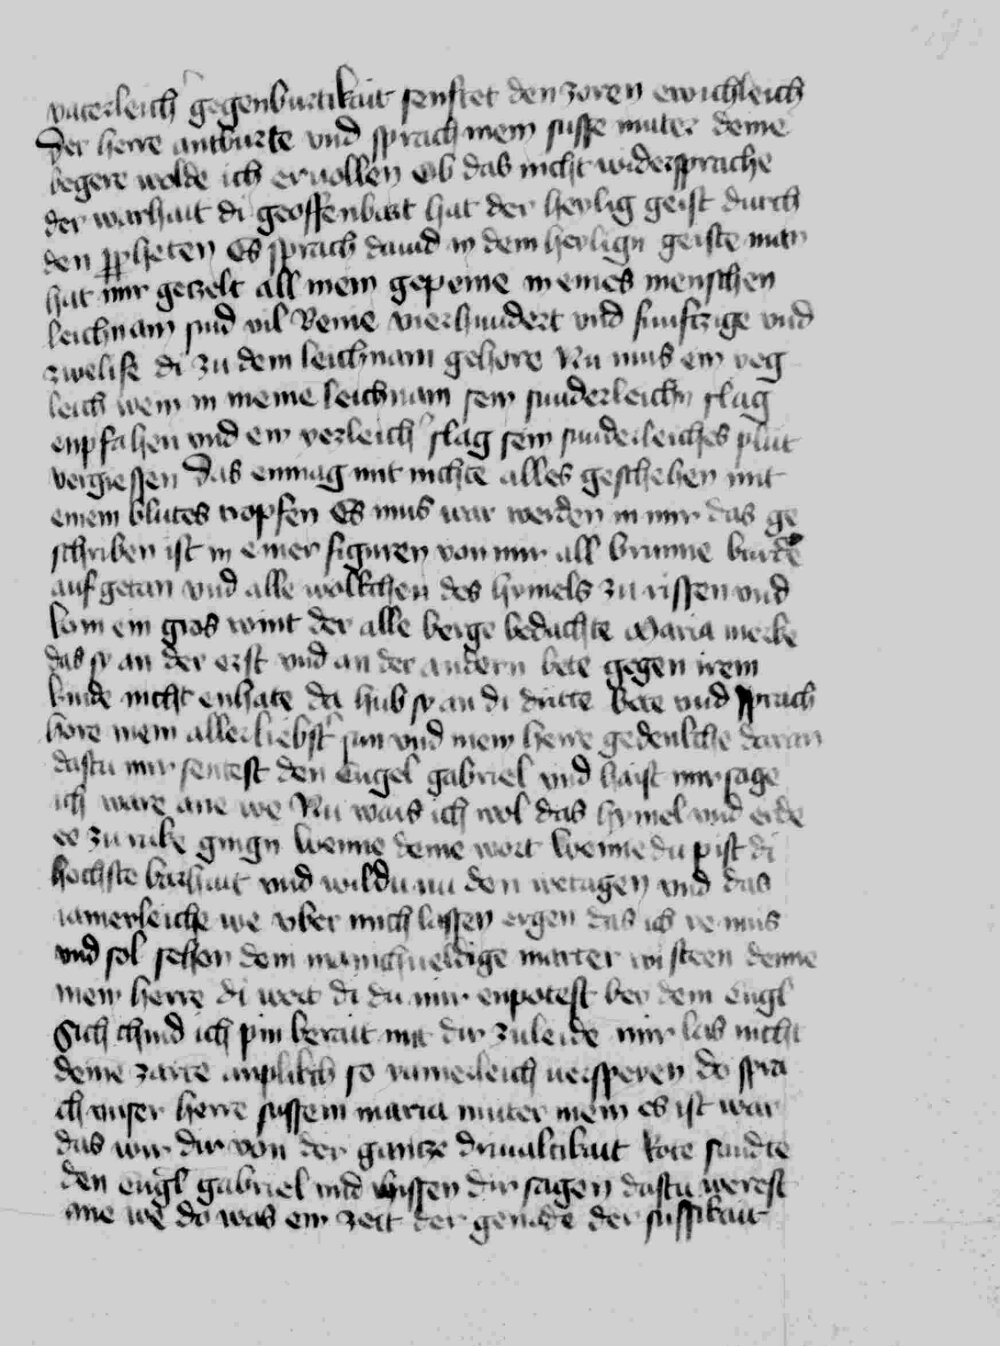 vaterleich gegenburtikait senftet den zoren ewichleich
Der herre antburte vnd sprach mein susse muter deine
begere wolde ich eruollen Ob das nicht widersprache
der warhait di geoffenbart hat der heylig geist durch
den ppheten Es sprach dauid in dem heylign geiste man
hat mir geczelt all mein gepeine in eines menschen
leichnam sind vil Beine vierhundert vnd funftzige vnd
zwelife di zu dem leichnam gehore Nu mus ein yeg
leich wein in meine leichnam sein sunderleichn slag
enpfahen vnd ein yerleich slag sein sunderleiches plut
vergiessen Das enmag mit nichte alles geschehen mit
einem blutes tropfen Es mus war werden in mir das ge
schriben ist in einer figuren von mir all brunne burde
auf getan vnd alle wolkchen des hymels zu rissen vnd
kom ein gros wint der alle berge bedachte Maria merke
das sy an der erst vnd an der andern bete gegen irem
kinde nicht enhate da hub sy an di dritte Bete vnd sprach
hore mein allerliebst sun vnd mein herre gedenkche daran
dastu mir sentest den Engel gabriel vnd haist mir sage
ich ware ane we Nu wais ich wol das hymel vnd erde
ee zu rike gingn wenne deine wort wenne du pist di
hochste barhait vnd wildu nu den wetagen vnd das
iamerleiche we vber mich lassen ergen das ich ye mus
vnd sol sehen dein manichueldige marter
mein herre di wort di du mir enpotest bey dem engl
Sich chind ich pin berait mit dir zuleide mir las nicht
deine zarte anplikch so iamerleich uersperen do spra
ch vnser herre sussein maria muter mein es ist war
das wir dir von der gantze driualtikait Rote sandte
den engl gabriel vnd hissen dir sagen dastu werest
ane we do was ein zeit der genade der sussikait